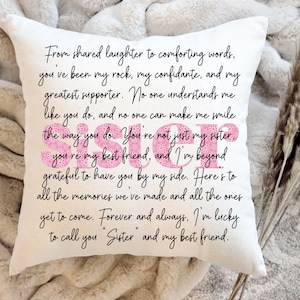 From shared laughter to comforting words,
you've been my rock, my confidante, and my
greatest supporter. No one understands me
like you do, and no one can make me smile
the way you do. You're not just my sister,
SISTER
you're my best friend, and I'm beyond
grateful to have you by my side. Here's to
all the memories we've made and all the ones
yet to come. Forever and always, I'm lucky
to call you "Sister" and my best friend.